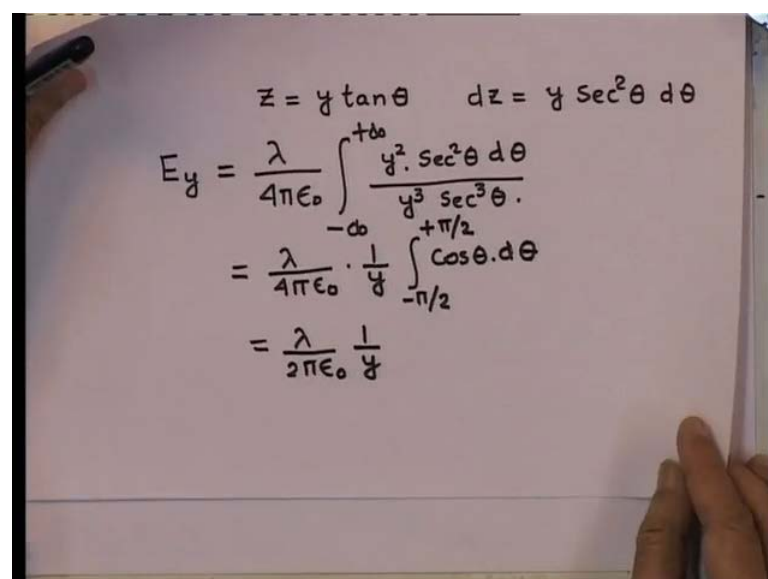 z = y tanθ dz = y Sec²θ dθ
E_y = λ/4πϵ₀ ∫_{-∞}^{+∞} y². Sec²θ dθ / y³ Sec³θ.
= λ/4πϵ₀ · 1/y ∫_{-π/2}^{+π/2} Cosθ.dθ
= λ/2πϵ₀ 1/y